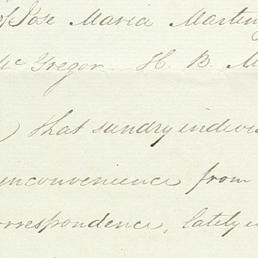 of Jose Maria Martin
Mc Gregor. H. B. M
) that sundry indivi
inconvenience from
orrespondence, lately